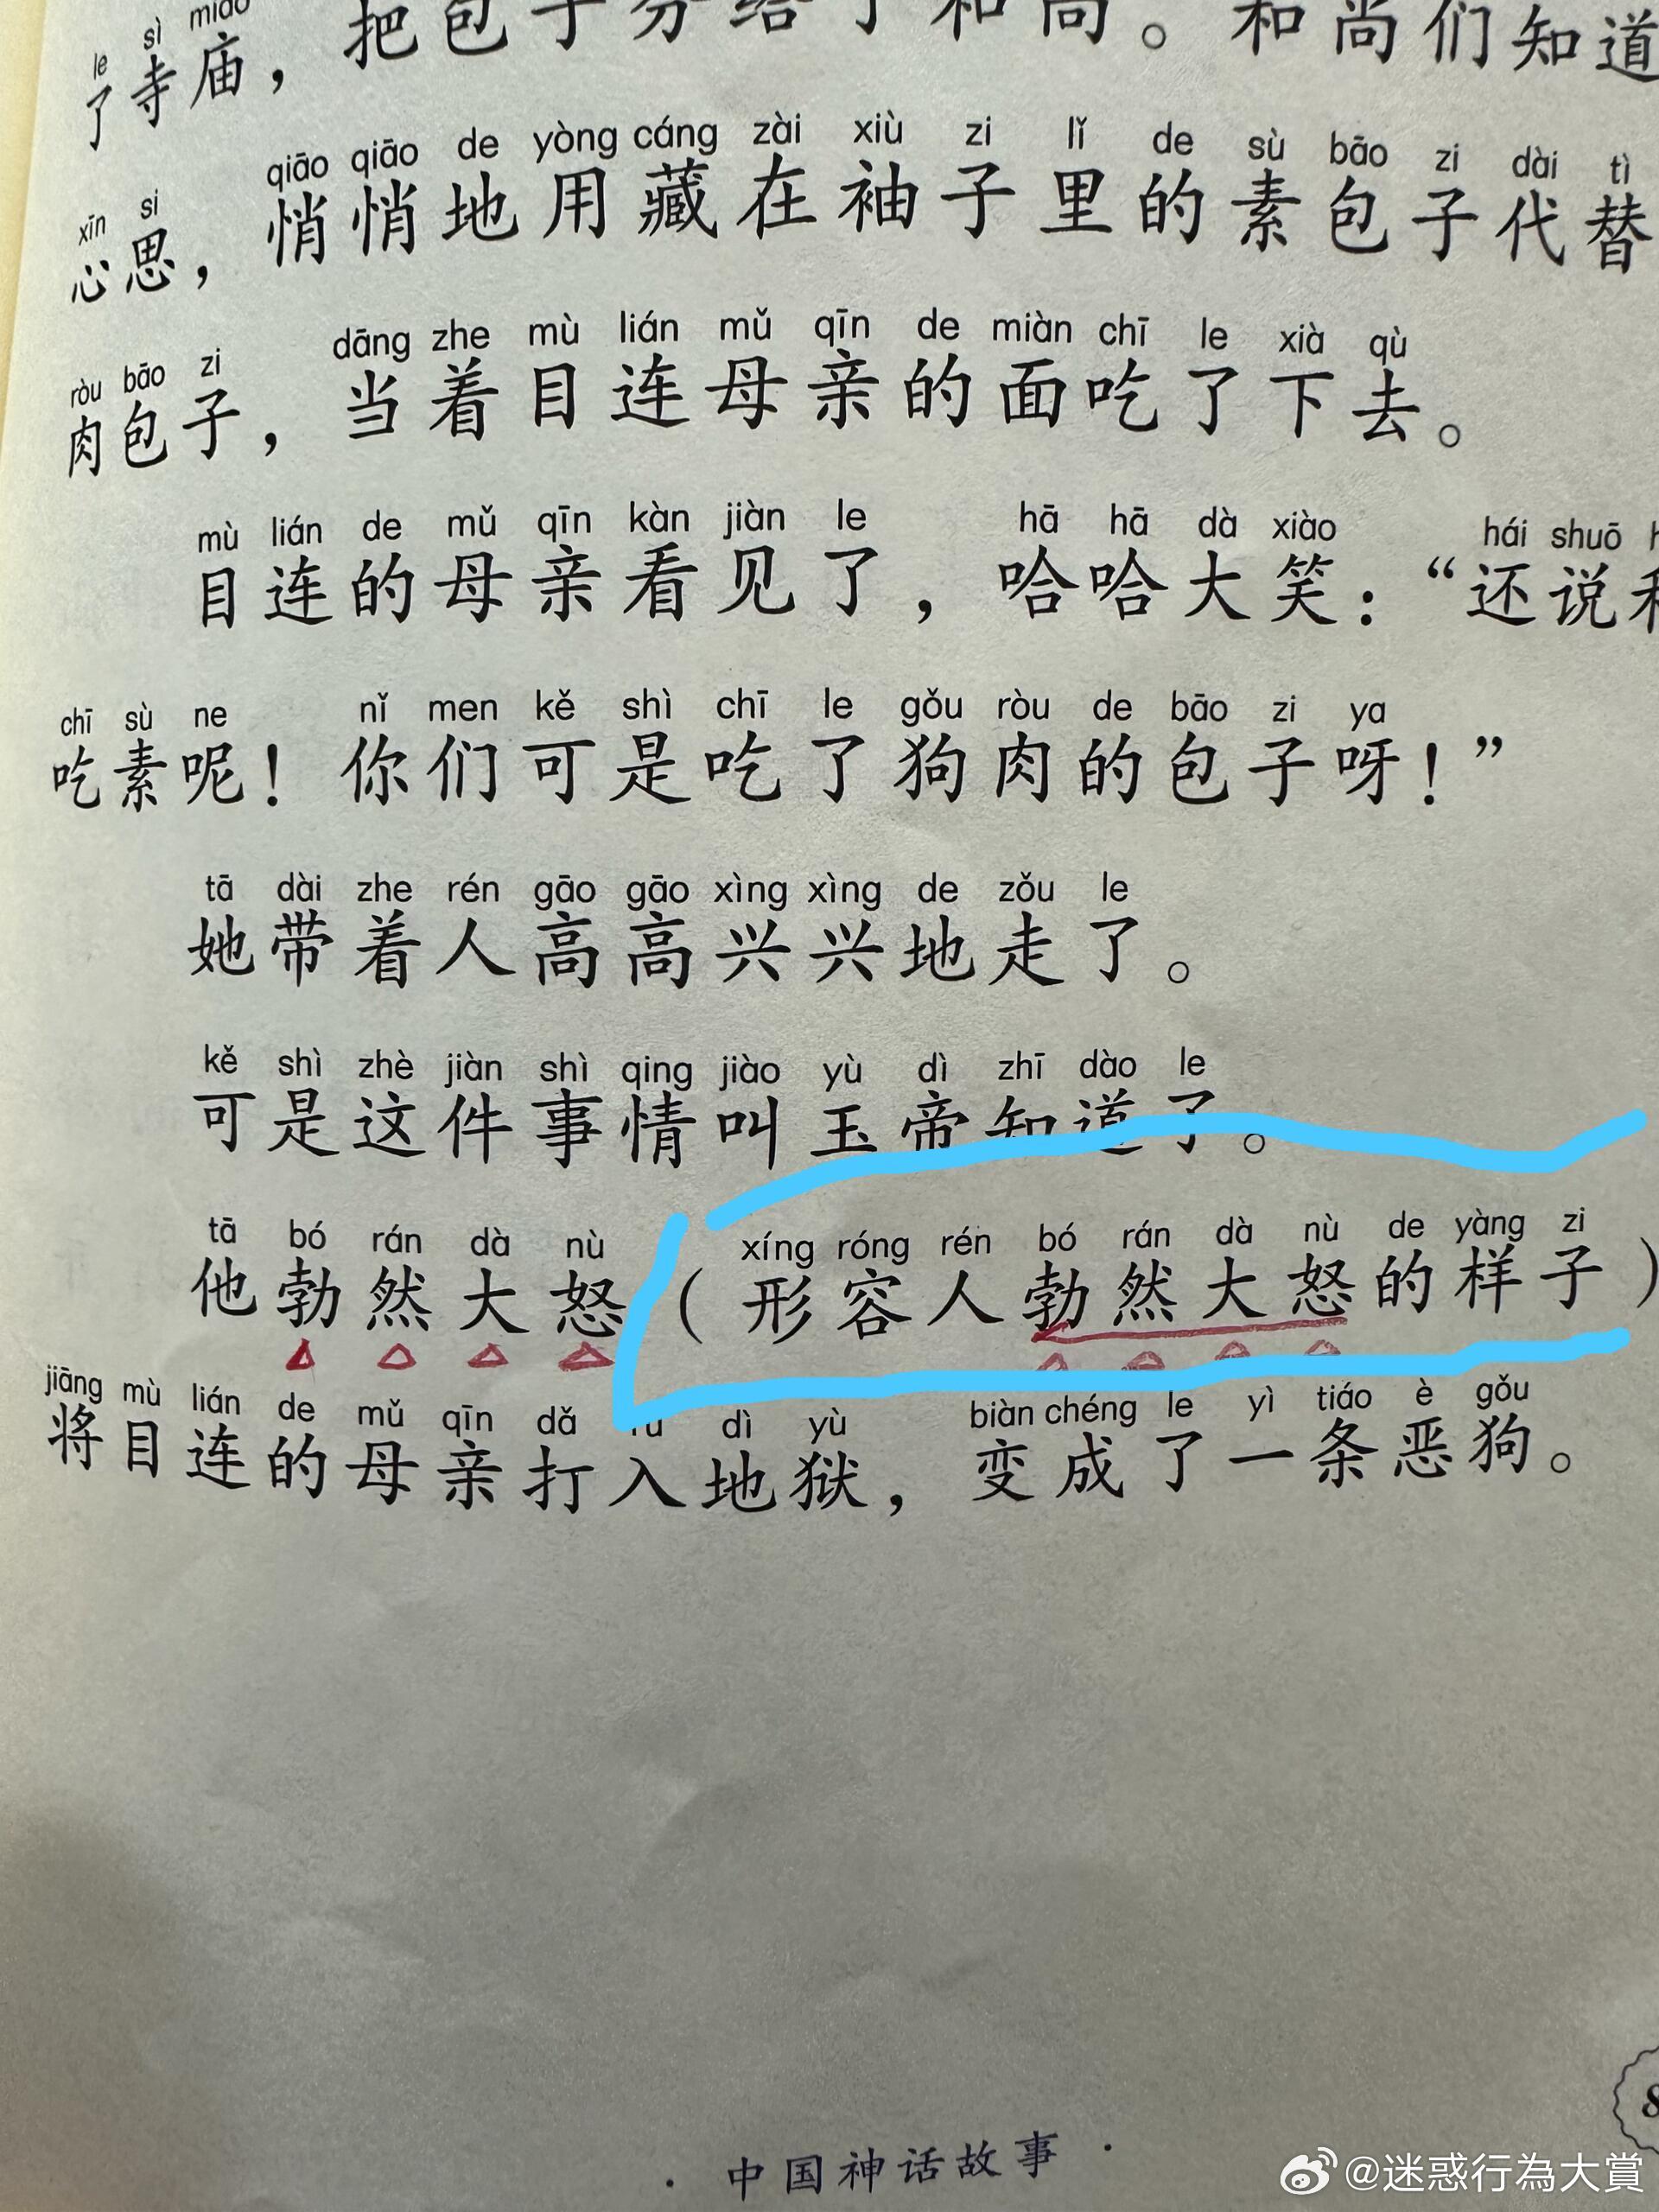 miào
le sì
了寺庙，把包子分给了和尚。和尚们知道
qiāo qiāo de yòng cáng zài xiù zi lǐ de sù bāo zi dài tì
xīn si
心思，悄悄地用藏在袖子里的素包子代替
dāng zhe mù lián mǔ qīn de miàn chī le xià qù
ròu bāo zi
肉包子，当着目连母亲的面吃了下去。
mù lián de mǔ qīn kàn jiàn le hā hā dà xiào hái shuō
目连的母亲看见了，哈哈大笑：“还说
chī sù ne nǐ men kě shì chī le gǒu ròu de bāo zi ya
吃素呢！你们可是吃了狗肉的包子呀！”
tā dài zhe rén gāo gāo xìng xìng de zǒu le
她带着人高高兴兴地走了。
kě shì zhè jiàn shì qing jiào yù dì zhī dào le
可是这件事情叫玉帝知道了。
tā bó rán dà nù xíng róng rén bó rán dà nù de yàng zi
他勃然大怒（形容人勃然大怒的样子）
jiāng mù lián de mǔ qīn dǎ dì yù biàn chéng le yì tiáo è gǒu
将目连的母亲打入地狱，变成了一条恶狗。
· 中国神话故事 ·
8
@迷惑行為大賞